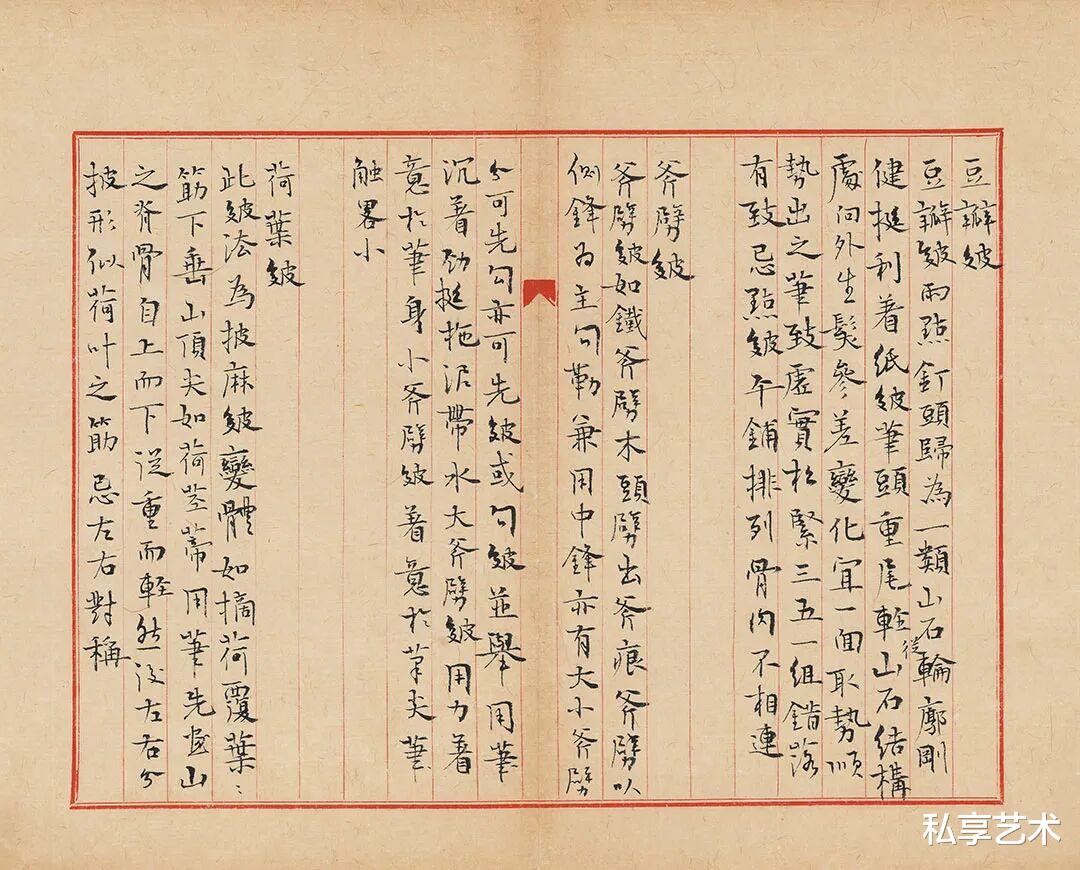 豆瓣皴
豆瓣皴雨點釘頭歸為一類山石輪廓剛
健挺利着紙皴筆頭重尾輕山石結構
從
處向外生髮參差變化宜一面取勢順
勢出之筆致虛實松緊三五一組錯落
有致忌點皴平鋪排列骨肉不相連
斧劈皴
斧劈皴如鐵斧劈木頭劈出斧痕斧劈以
側鋒为主勾勒兼用中鋒亦有大小斧劈
分可先勾亦可先皴或勾皴並舉用筆
沉着勁挺拖泥帶水大斧劈皴用力著
意於筆身小斧劈皴著意於筆尖筆
触畧小
荷葉皴
此皴法為披麻皴變體如摘荷覆葉
筋下垂山頂尖如荷茎蒂用筆先畫山
之脊骨自上而下從重而輕然後左右分
披形似荷叶之筋忌左右對稱
私享艺术